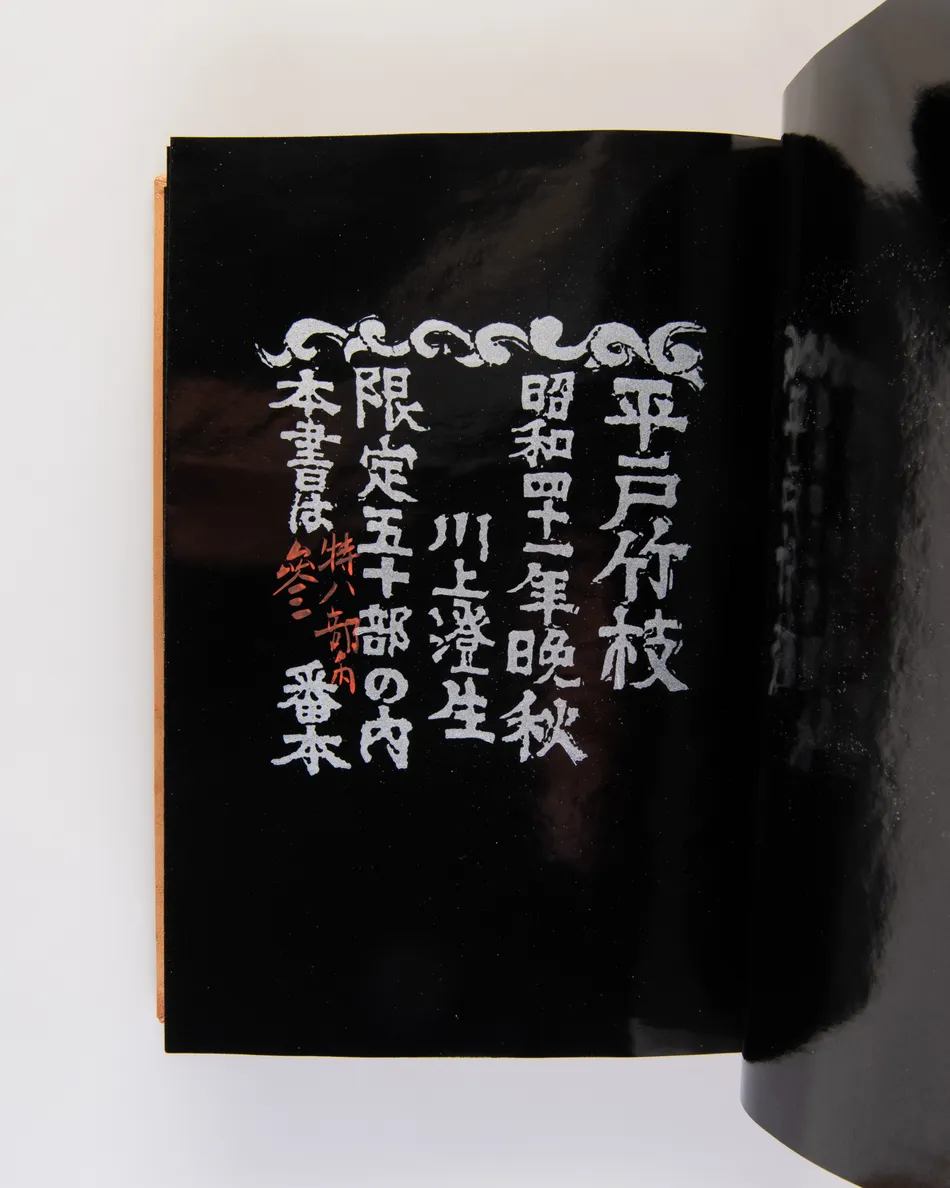 平戸竹枝
昭和四十一年晩秋
川上澄生
限定五十部の内
本書は
特八部内
參
番本